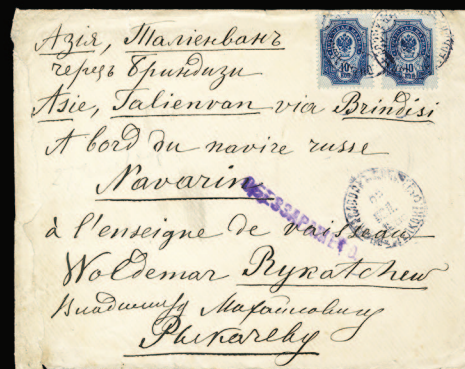 Азія, Таліенванъ
черезъ Бриндизи
Asie, Talienvan via Brindisi
A bord du navire russe
Navarin
à l'enseigne de vaisseau
Woldemar Rykatchew
Владиміру Михайловичу
Рыкачеву
10 10